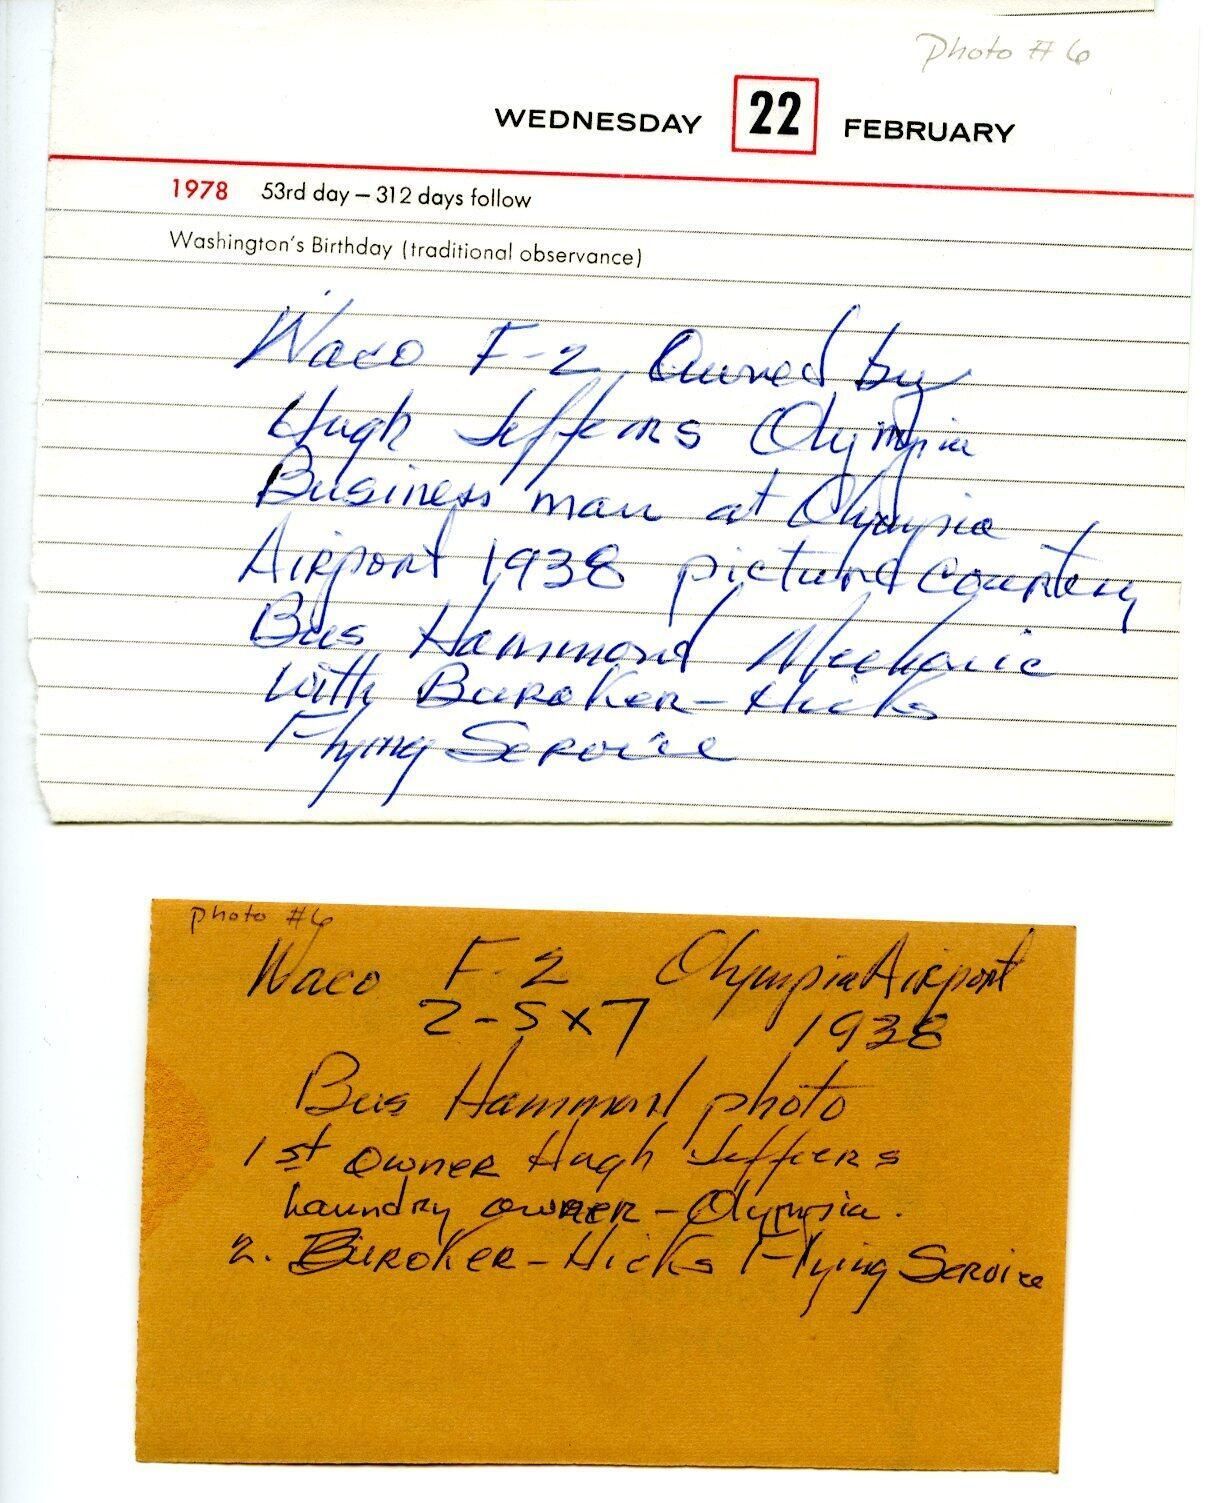 Photo # 6
WEDNESDAY 22 FEBRUARY
1978 53rd day – 312 days follow
Washington's Birthday (traditional observance)
Waco F-2 Owned by
Hugh Jeffers Olympia
Business man at Olympia
Airport 1938 picture courtesy
Bus Hammond Mechanic
with Buroker-Hicks
Flying Service
photo #6
Waco F-2 Olympia Airport
2-5x7 1938
Bus Hammond photo
1st owner Hugh Jeffers
Laundry owner - Olympia.
2. Buroker-Hicks Flying Service